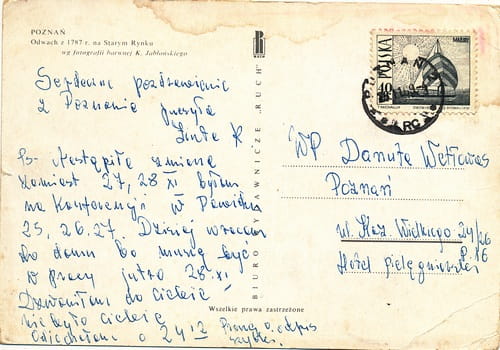 POZNAŃ
Odwach z 1787 r. na Starym Rynku
wg fotografii barwnej K. Jabłońskiego
RUCH
Serdeczne pozdrowienia
z Poznania przesyła
R
Ps. Nastąpiła zmiana
zamiast 27, 28 XI byłam
na Konferencji w
25, 26.27. Dzisiaj wracam
do domu bo muszę być
w pracy jutro 28.XI
Dzwoniłam do Ciebie
nie było Ciebie
o 24 12 Proszę o odpis
Wszelkie prawa zastrzeżone
BIURO WYDAWNICZE „RUCH"
POLSKA
40
POZNAŃ
WP Danuta
Poznań
ul. Kaz. Wielkiego 24/26
p 16
Hotel pielęgniarski